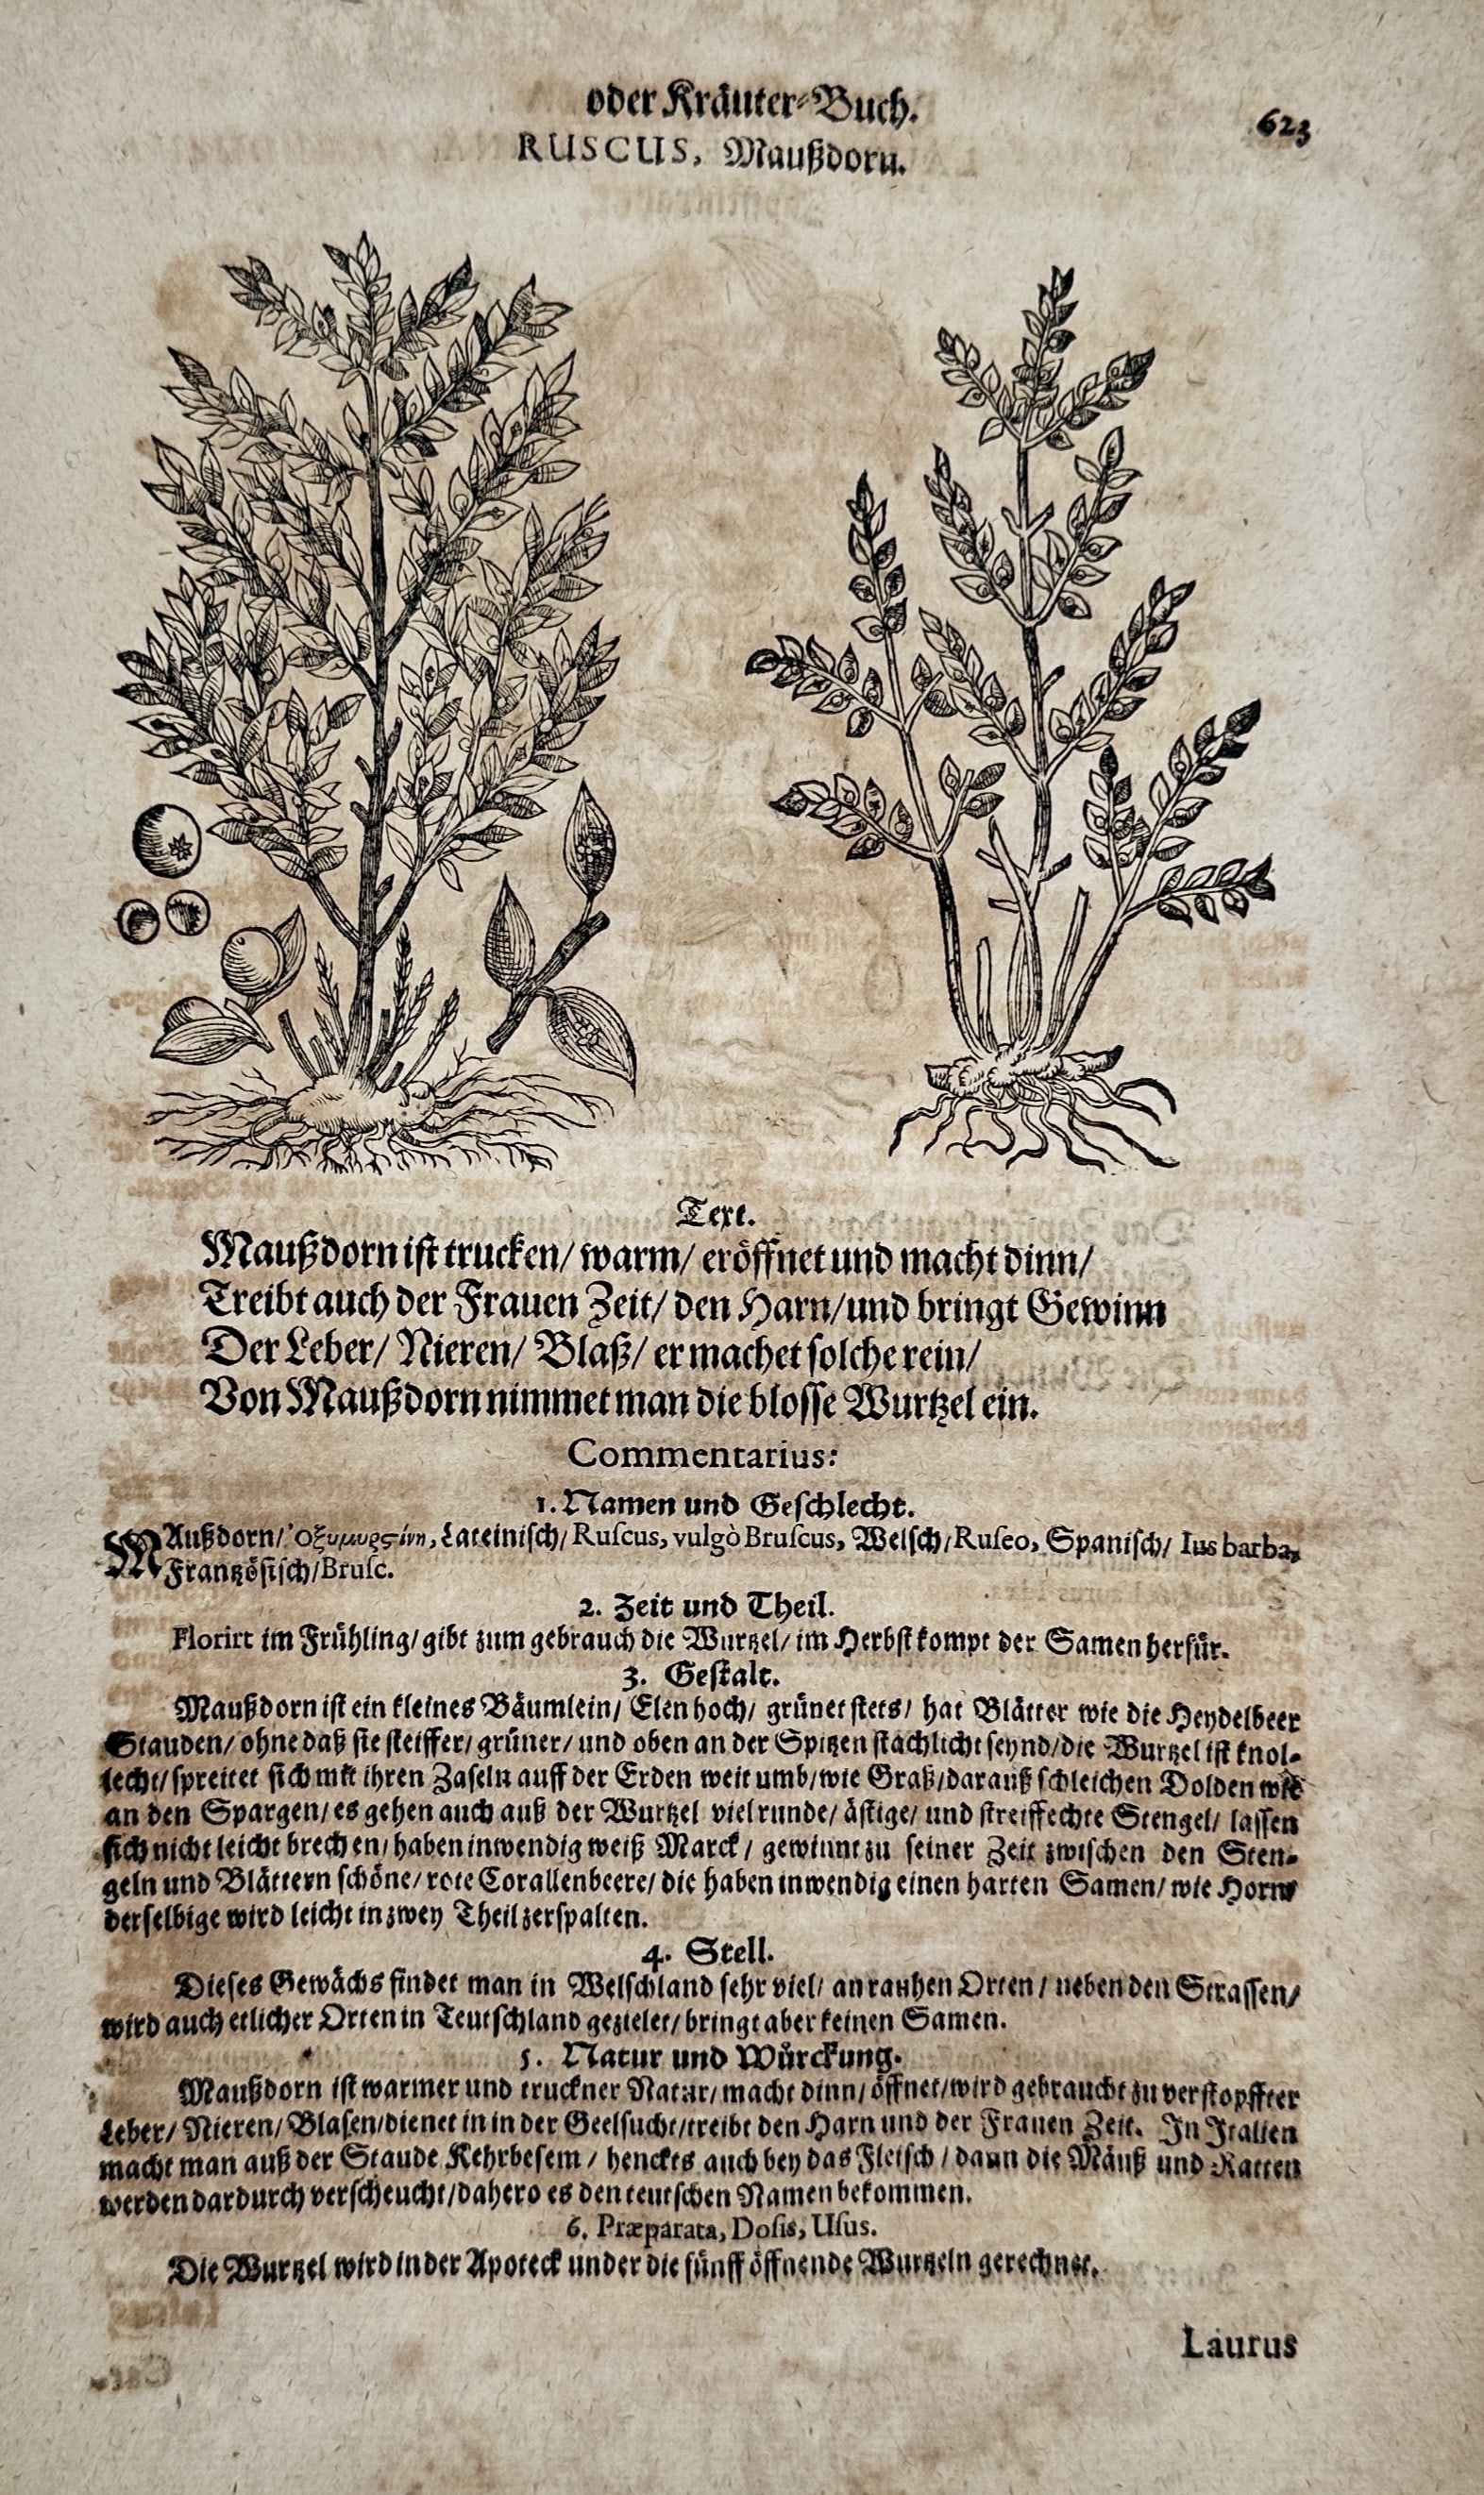 oder Kräuter-Buch.
623
RUSCUS, Maußdorn.
Text.
Maußdorn ist trucken/ warm/ eröffnet und macht dinn/
Treibt auch der Frauen Zeit/ den Harn/ und bringt Gewinn
Der Leber/ Nieren/ Blaß/ er machet solche rein/
Von Maußdorn nimmet man die blosse Wurtzel ein.
Commentarius:
1. Namen und Geschlecht.
MAußdorn/ Ὀξυμυρσίνη, Lateinisch/ Ruscus, vulgò Bruscus, Welsch/ Ruseo, Spanisch/ Ius barba,
Frantzösisch/ Brusc.
2. Zeit und Theil.
Florirt im Frühling/ gibt zum gebrauch die Wurtzel/ im Herbst kompt der Samen herfür.
3. Gestalt.
Maußdorn ist ein kleines Bäumlein/ Elen hoch/ grünet stets/ hat Blätter wie die Heydelbeer
Stauden/ ohne daß sie steiffer/ grüner/ und oben an der Spitzen stächlicht seynd/ die Wurtzel ist knol-
lecht/ spreitet sich mit ihren Zaseln auff der Erden weit umb/ wie Graß/ darauß schleichen Dolden wie
an den Spargen/ es gehen auch auß der Wurtzel viel runde/ ästige/ und streiffechte Stengel/ lassen
sich nicht leicht brechen/ haben inwendig weiß Marck/ gewinnt zu seiner Zeit zwischen den Sten-
geln und Blättern schöne/ rote Corallenbeere/ die haben inwendig einen harten Samen/ wie Horn/
derselbige wird leicht in zwey Theil zerspalten.
4. Stell.
Dieses Gewächs findet man in Welschland sehr viel/ an rauhen Orten/ neben den Strassen/
wird auch etlicher Orten in Teutschland gezielet/ bringt aber keinen Samen.
5. Natur und Würckung.
Maußdorn ist warmer und truckner Natur/ macht dinn/ öffnet/ wird gebraucht zu verstopffter
Leber/ Nieren/ Blasen/ dienet in in der Geelsucht/ treibt den Harn und der Frauen Zeit. In Italien
macht man auß der Staude Kehrbesem/ henckts auch bey das Fleisch/ dann die Mäuß und Ratten
werden dardurch verscheucht/ dahero es den teutschen Namen bekommen.
6. Præparata, Dosis, Usus.
Die Wurtzel wird in der Apoteck under die fünff öffnende Wurtzeln gerechnet.
Laurus